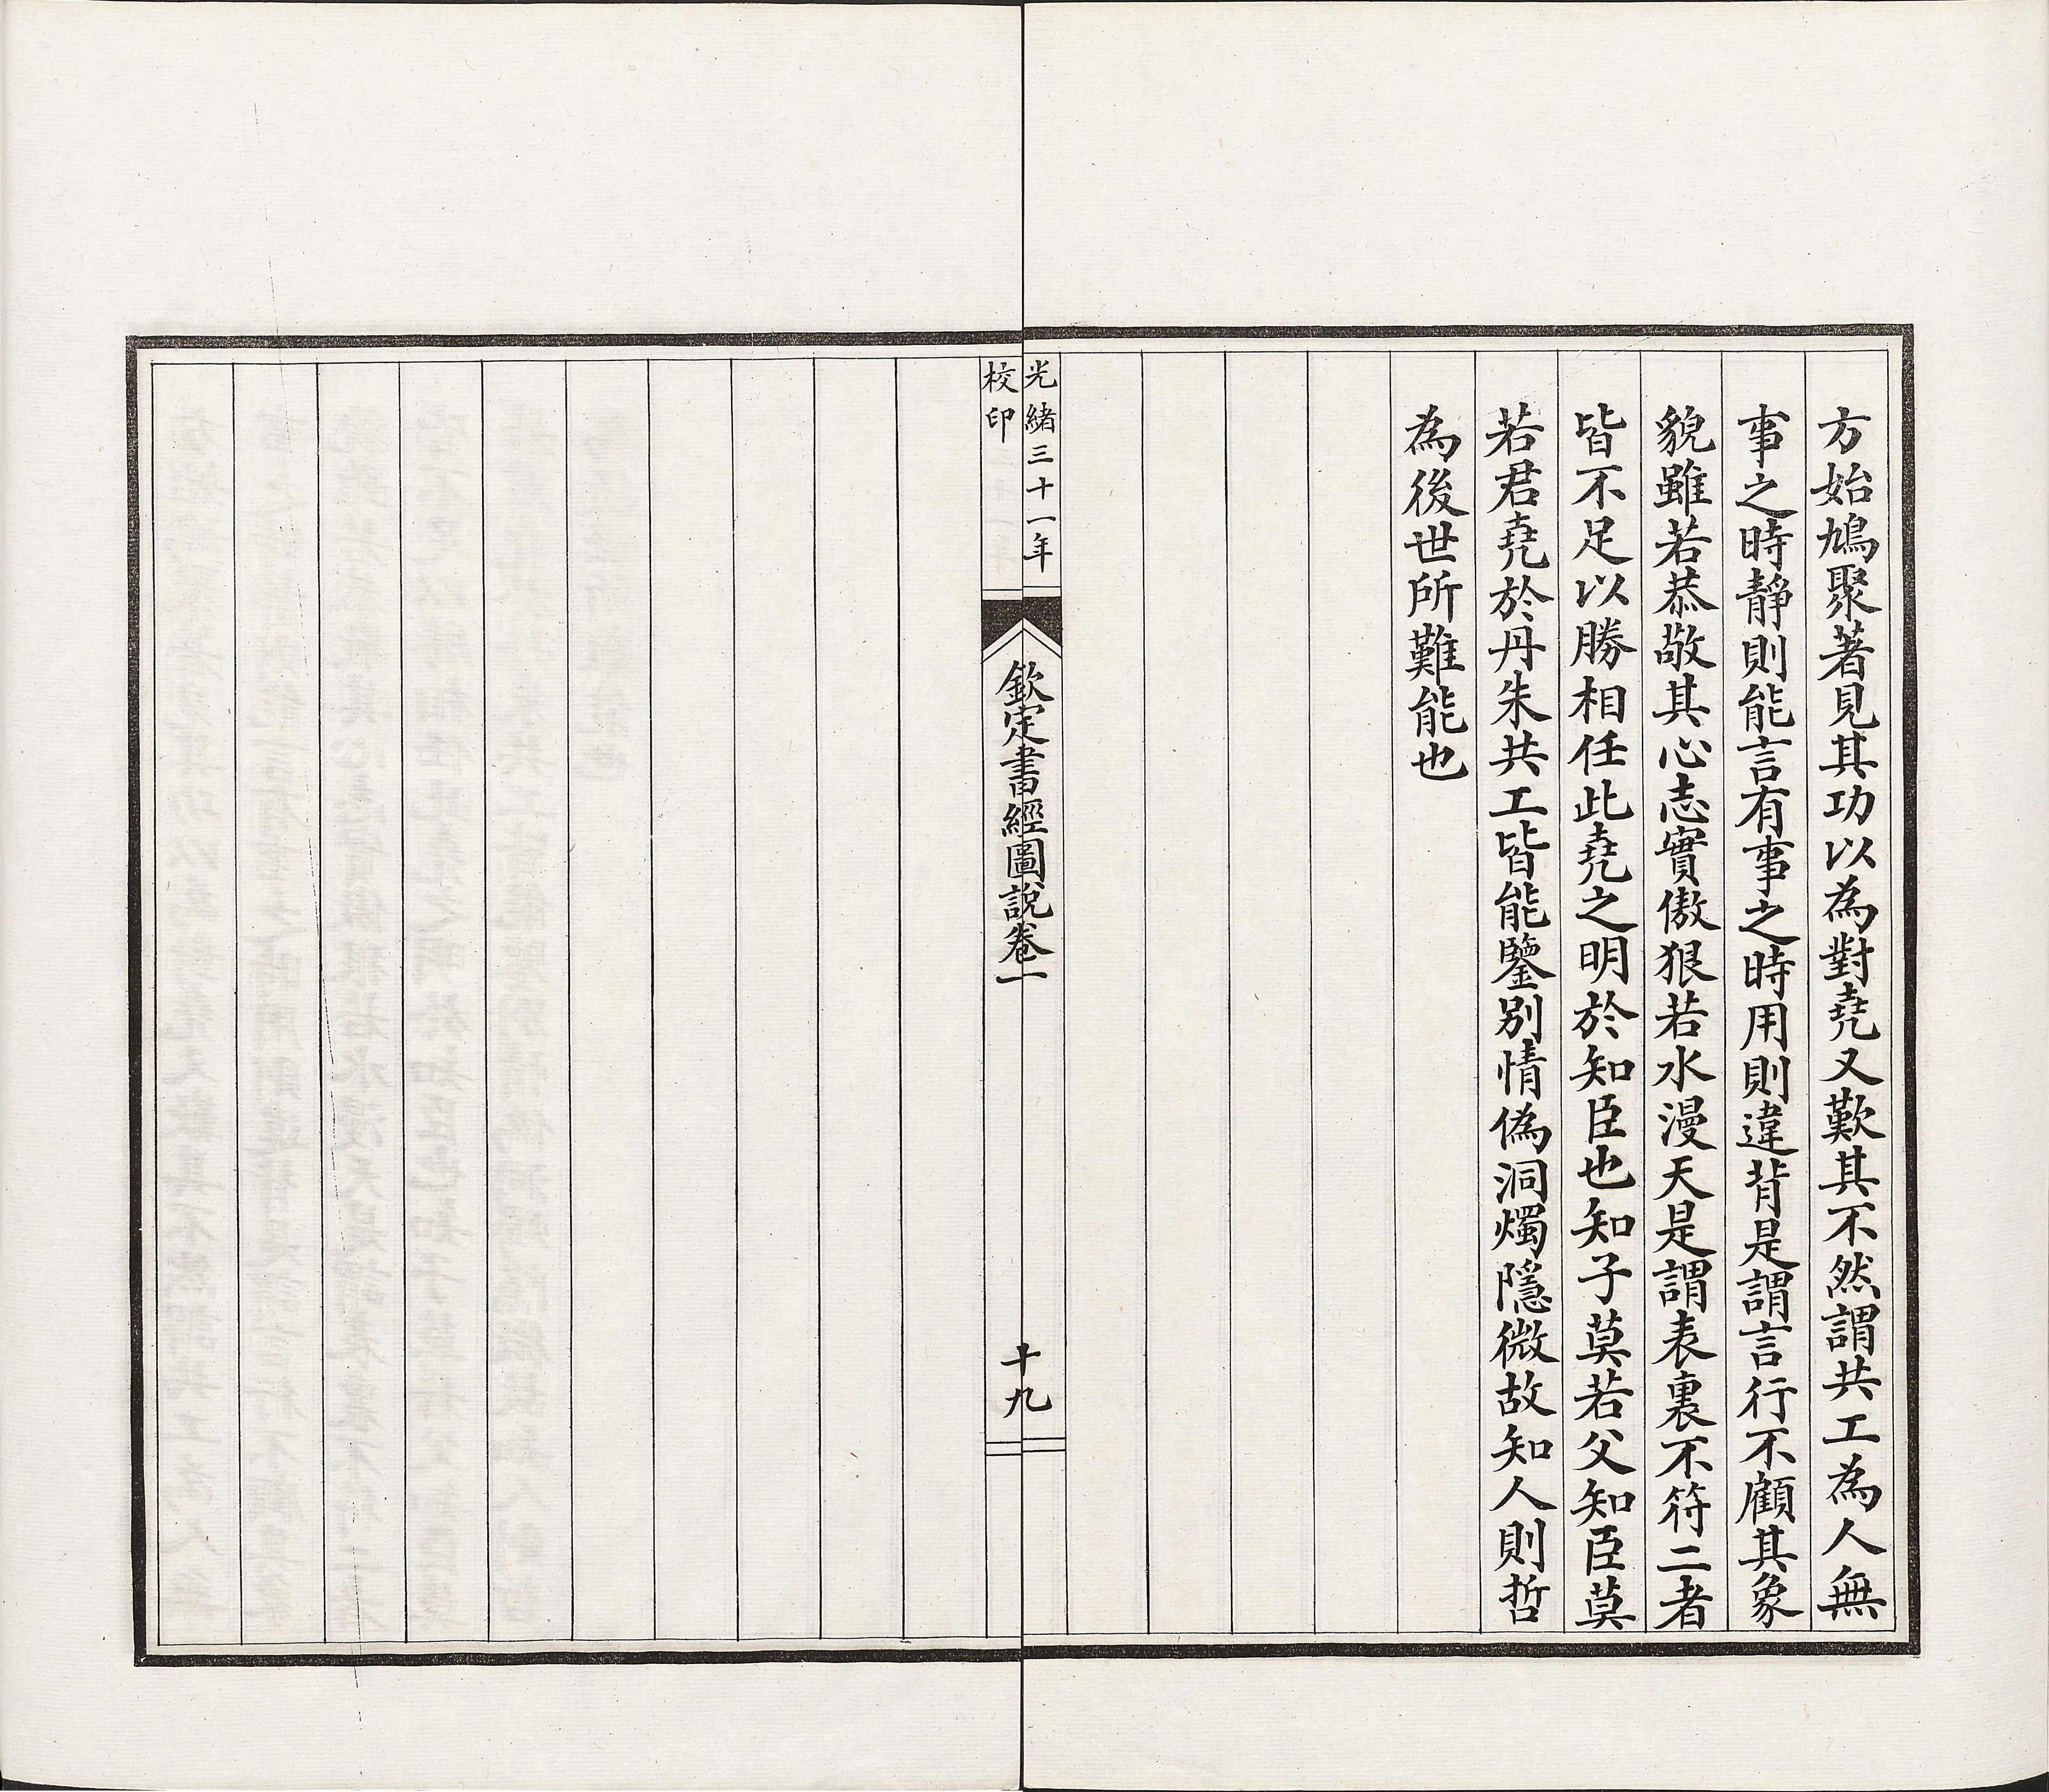 方始鳩聚著見其功以為對堯又歎其不然謂共工為人無
事之時靜則能言有事之時用則違背是謂言行不顧其象
貌雖若恭敬其心志實傲狠若水漫天是謂表裏不符二者
皆不足以勝相任此堯之明於知臣也知子莫若父知臣莫
若君堯於丹朱共工皆能鑒別情偽洞燭隱微故知人則哲
為後世所難能也
光緒三十一年
校印
欽定書經圖說卷一
十九